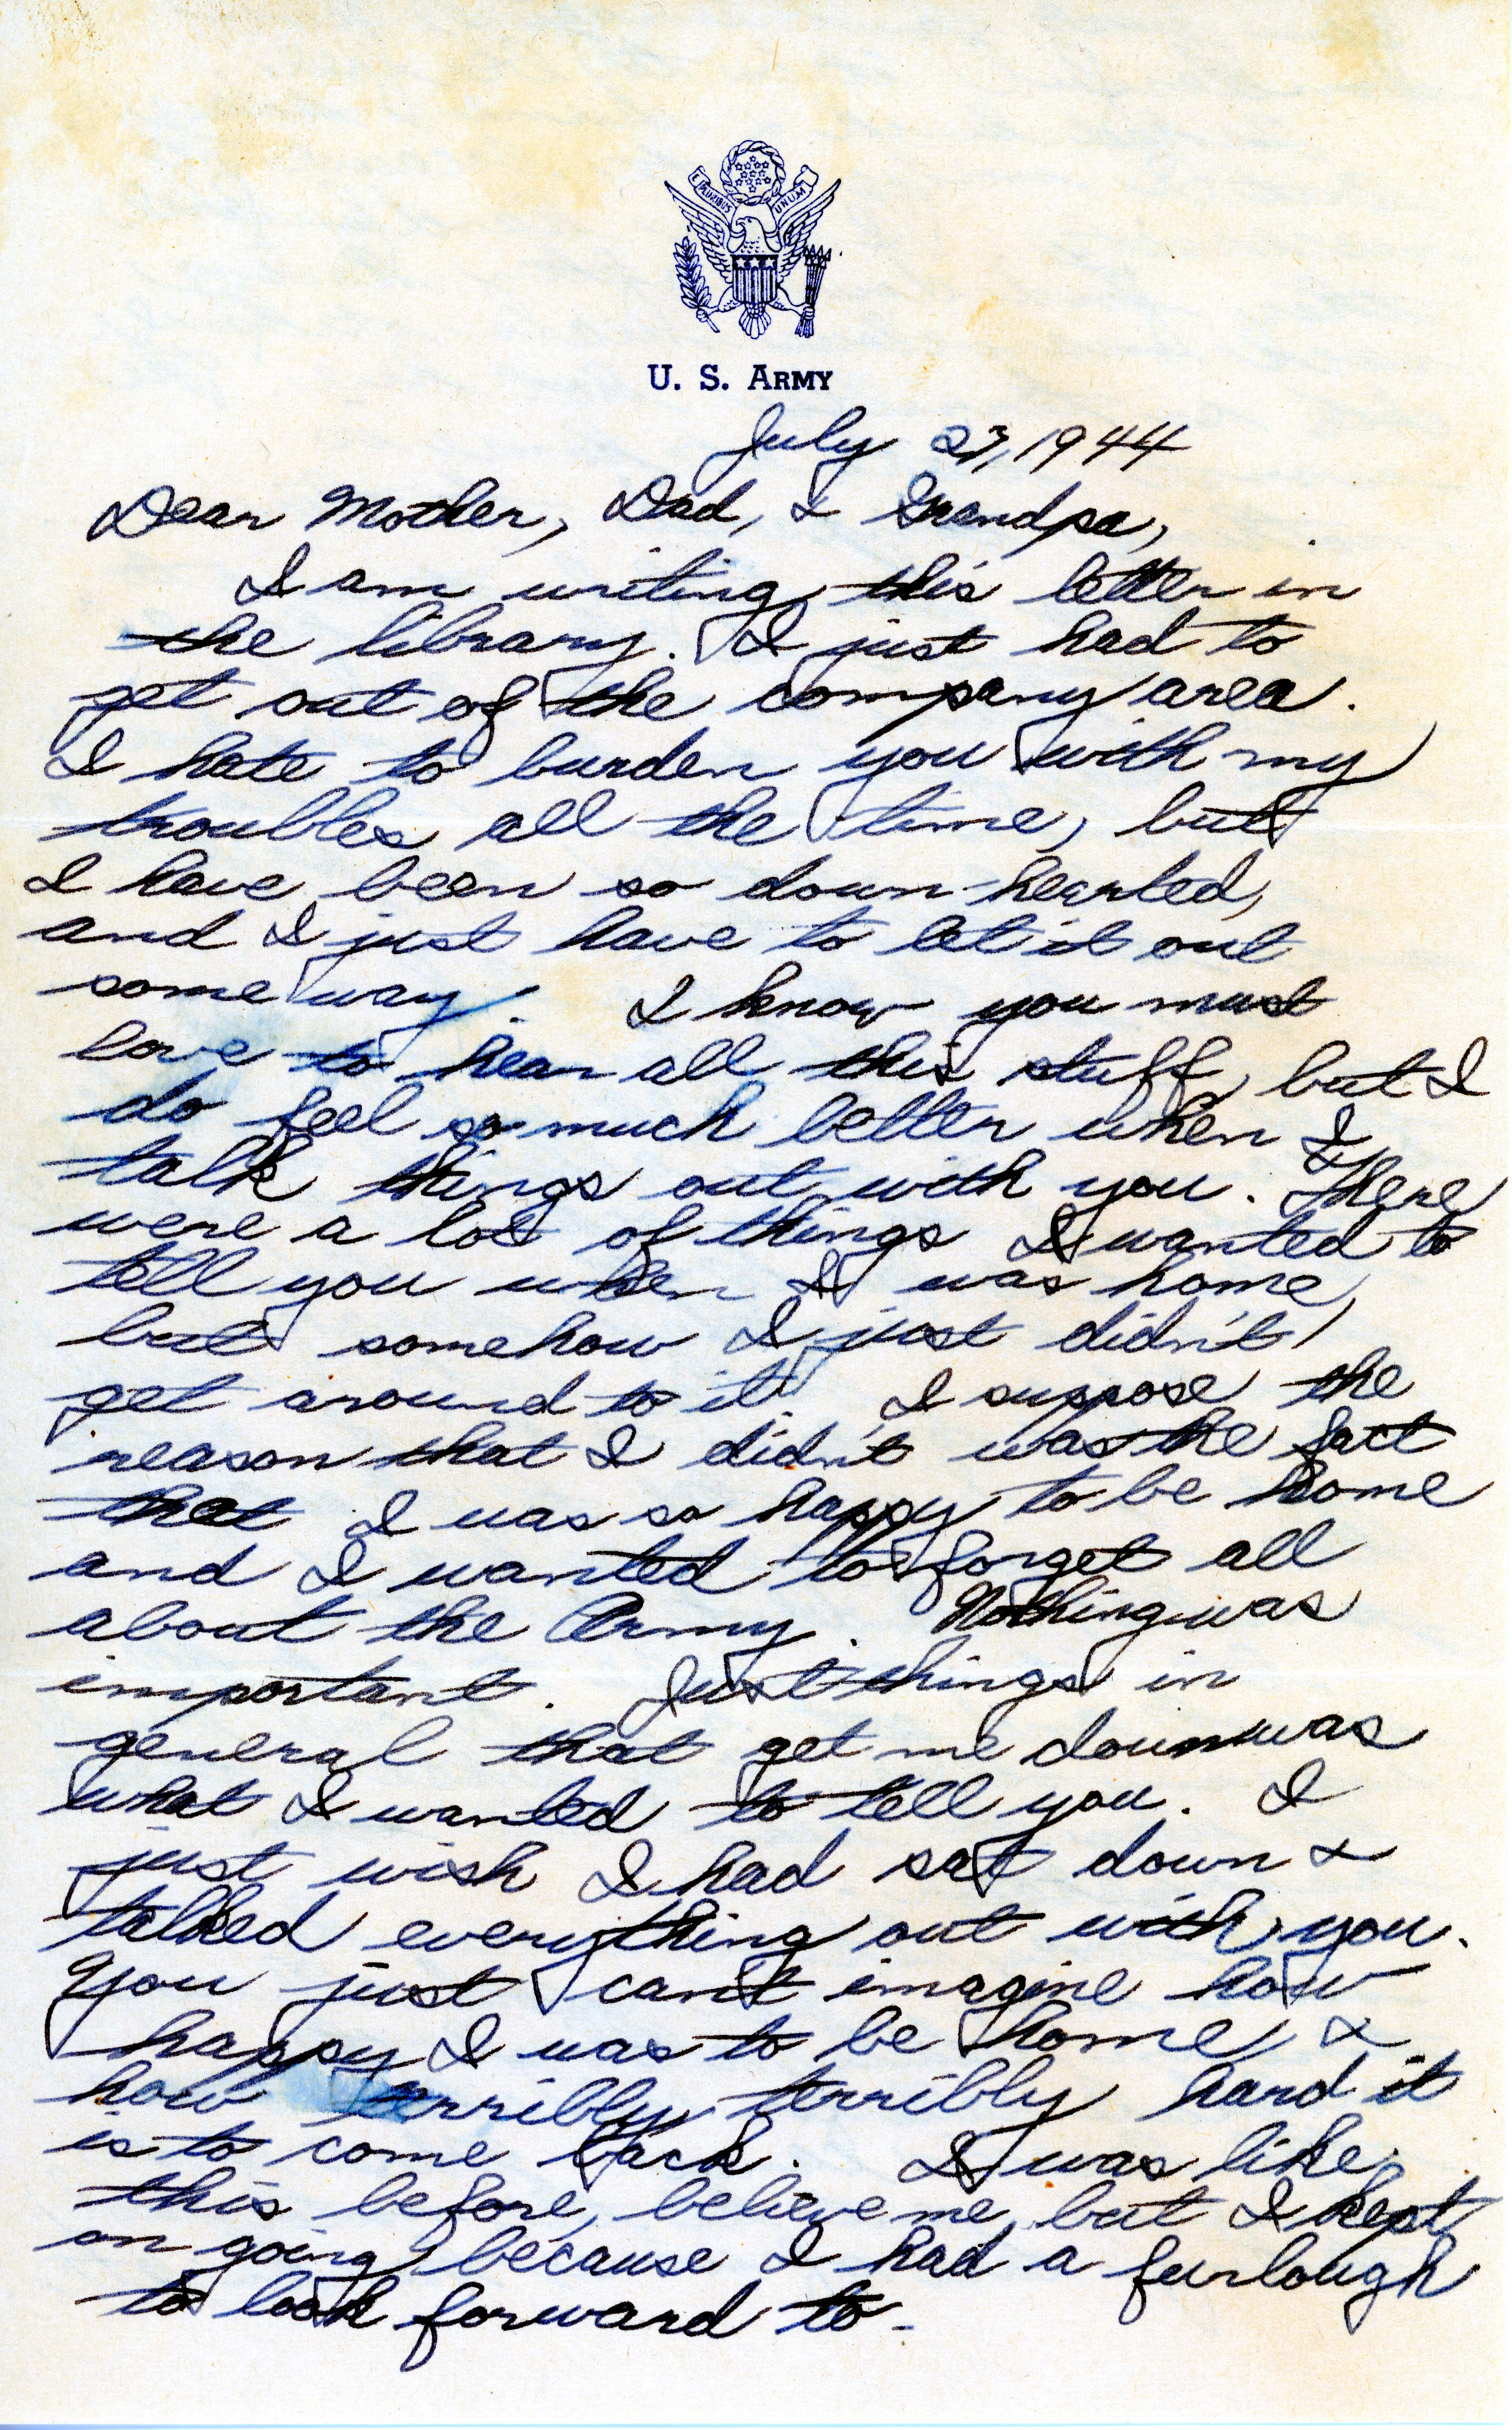 E PLURIBUS UNUM
U. S. ARMY
July 27, 1944
Dear Mother, Dad, & Grandpa,
I am writing this letter in
the library. I just had to
get out of the company area.
I hate to burden you with my
troubles all the time, but
I have been so down-hearted,
and I just have to let it out
some way. I know you must
love to hear all this stuff, but I
do feel so much better when I
talk things out with you. There
were a lot of things I wanted to
tell you when I was home,
but somehow I just didn't
get around to it. I suppose the
reason that I didn't was the fact
that I was so happy to be home
and I wanted to forget all
about the Army. Nothing was
important. Just things in
general that get me down was
what I wanted to tell you. I
just wish I had sat down &
talked everything out with you.
You just can't imagine how
happy I was to be home, &
how terribly, terribly hard it
is to come back. I was like
this before, believe me, but I kept
on going because I had a furlough
to look forward to.